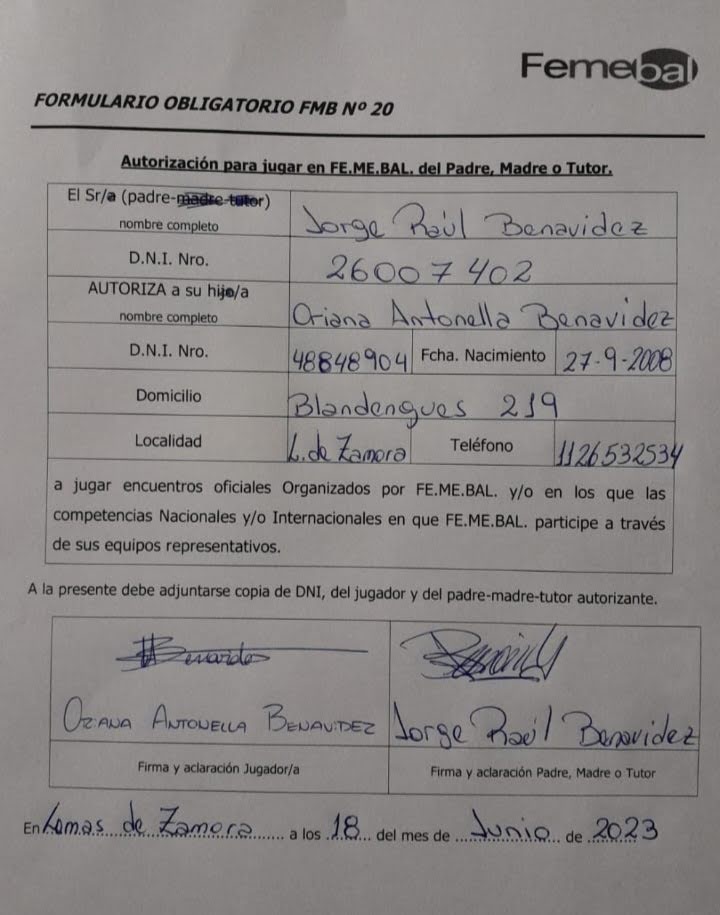 Femebal
FORMULARIO OBLIGATORIO FMB Nº 20
Autorización para jugar en FE.ME.BAL. del Padre, Madre o Tutor.
El Sr/a (padre-madre-tutor)
nombre completo
Jorge Raúl Benavidez
D.N.I. Nro.
26007402
AUTORIZA a su hijo/a
nombre completo
Oriana Antonella Benavidez
D.N.I. Nro.
48848904
Fcha. Nacimiento
27-9-2008
Domicilio
Blandengues 219
Localidad
L. de Zamora
Teléfono
1126532534
a jugar encuentros oficiales Organizados por FE.ME.BAL. y/o en los que las
competencias Nacionales y/o Internacionales en que FE.ME.BAL. participe a través
de sus equipos representativos.
A la presente debe adjuntarse copia de DNI, del jugador y del padre-madre-tutor autorizante.
ORIANA ANTONELLA BENAVIDEZ
Jorge Raúl Benavidez
Firma y aclaración Jugador/a
Firma y aclaración Padre, Madre o Tutor
En Lomas de Zamora a los 18 del mes de Junio de 2023